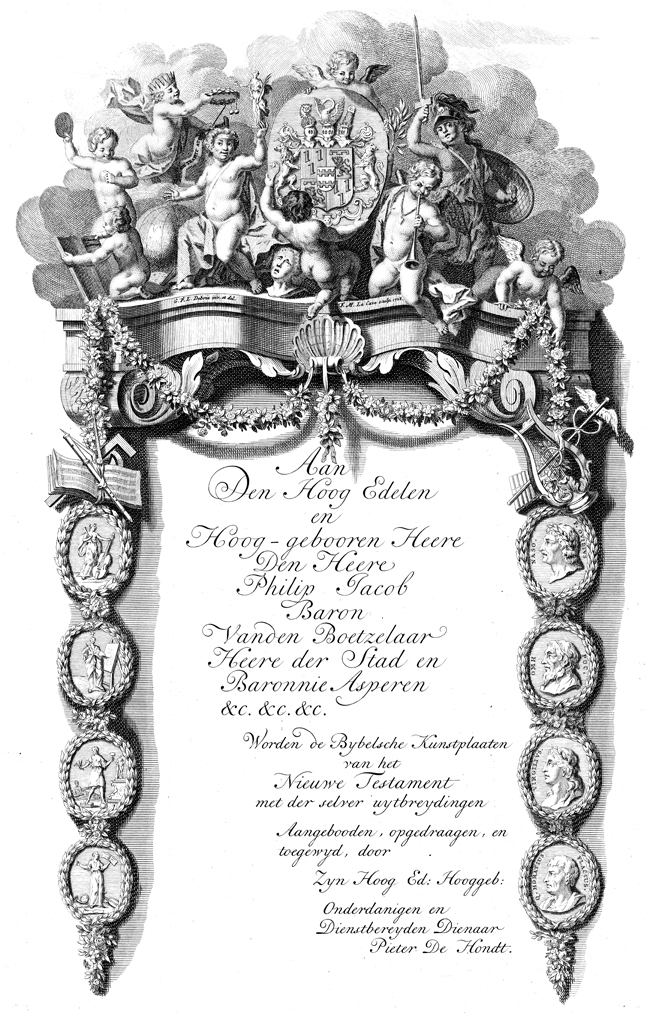 Aan
Den Hoog Edelen
en
Hoog-gebooren Heere
Den Heere
Philip Jacob
Baron
Vanden Boetzelaar
Heere der Stad en
Baronnie Asperen
&c. &c. &c.
Worden de Bybelsche Kunstplaaten
van het
Nieuwe Testament
met der selver uytbreydingen
Aangebooden, opgedraagen, en
toegewyd, door
Zyn Hoog Ed: Hooggeb:
Onderdanigen en
Dienstbereyden Dienaar
Pieter De Hondt.